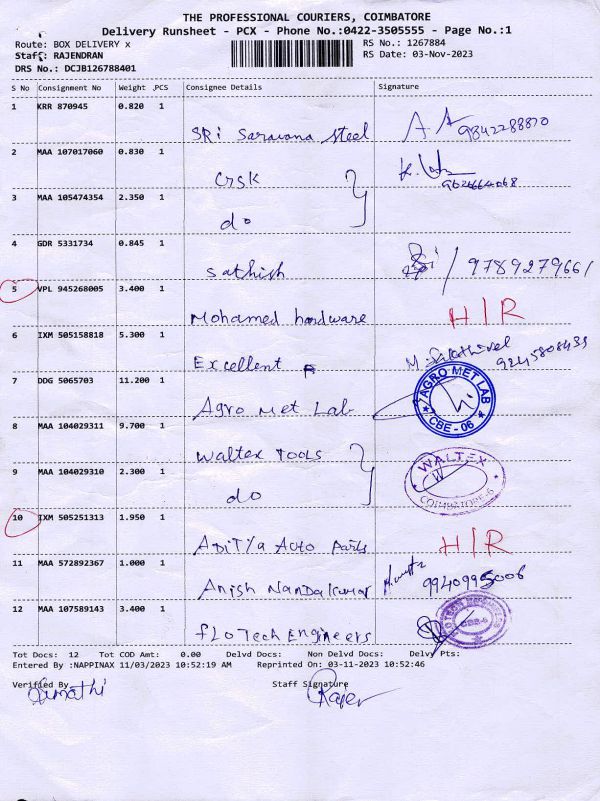 THE PROFESSIONAL COURIERS, COIMBATORE
Delivery Runsheet - PCX - Phone No.:0422-3505555 - Page No.:1
Route: BOX DELIVERY x RS No.: 1267884
Staff: RAJENDRAN RS Date: 03-Nov-2023
DRS No.: DCJB126788401
S No Consignment No Weight .PCS Consignee Details Signature
1 KRR 870945 0.820 1
SRi Saravana Steel 9842288820
2 MAA 107017060 0.830 1
CrSK
3 MAA 105474354 2.350 1
do
4 GDR 5331734 0.845 1
Sathish 9789279661
5 VPL 945268005 3.400 1
Mohamed hardware H/R
6 IXM 505158818 5.300 1
Excellent 9245808433
7 DDG 5065703 11.200 1
Agro Met Lab AGRO MET LAB CBE-06
8 MAA 104029311 9.700 1
Waltex TOOLS
9 MAA 104029310 2.300 1
do WALTEX COIMBATORE-6
10 IXM 505251313 1.950 1
ADITYA AUTO Parts H/R
11 MAA 572892367 1.000 1
Anish Nandakumar 9940995006
12 MAA 107589143 3.400 1
FLOTech Engineers
Tot Docs: 12 Tot COD Amt: 0.00 Delvd Docs: Non Delvd Docs: Delvy Pts:
Entered By :NAPPINAX 11/03/2023 10:52:19 AM Reprinted On: 03-11-2023 10:52:46
Verified By Staff Signature